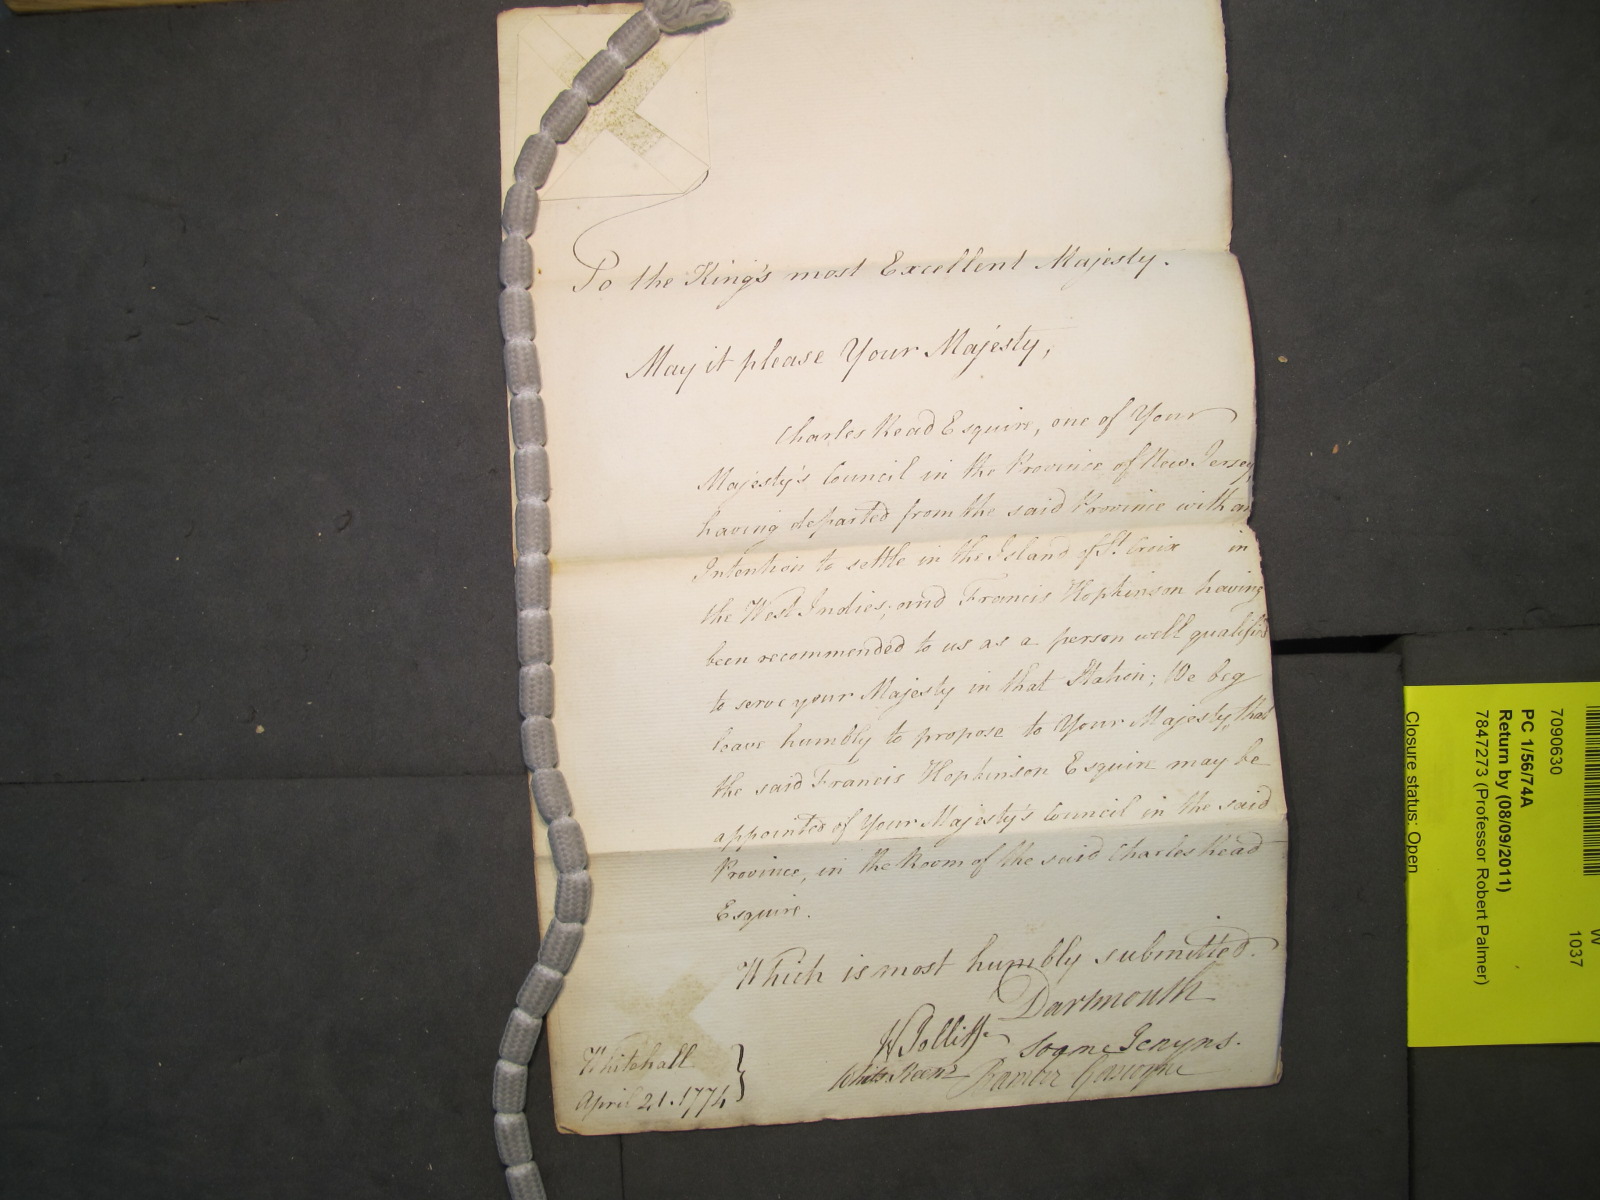 To the King's most Excellent Majesty.
May it please Your Majesty,
Charles Read Esquire, one of Your
Majesty's Council in the Province of New Jersey,
having departed from the said Province with an
Intention to settle in the Island of St. Croix in
the West Indies; and Francis Hopkinson having
been recommended to us as a person well qualified
to serve your Majesty in that Station; We beg
leave humbly to propose to Your Majesty, that
the said Francis Hopkinson Esquire may be
appointed of Your Majesty's Council in the said
Province, in the Room of the said Charles Read
Esquire.
Which is most humbly submitted.
Dartmouth
Soame Jenyns.
W Jolliffe
Bamber Gascoyne
Whitshed Keene
Whitehall
April 21. 1774
W
1037
7090630
PC 1/56/74A
Return by (08/09/2011)
7847273 (Professor Robert Palmer)
Closure status: Open